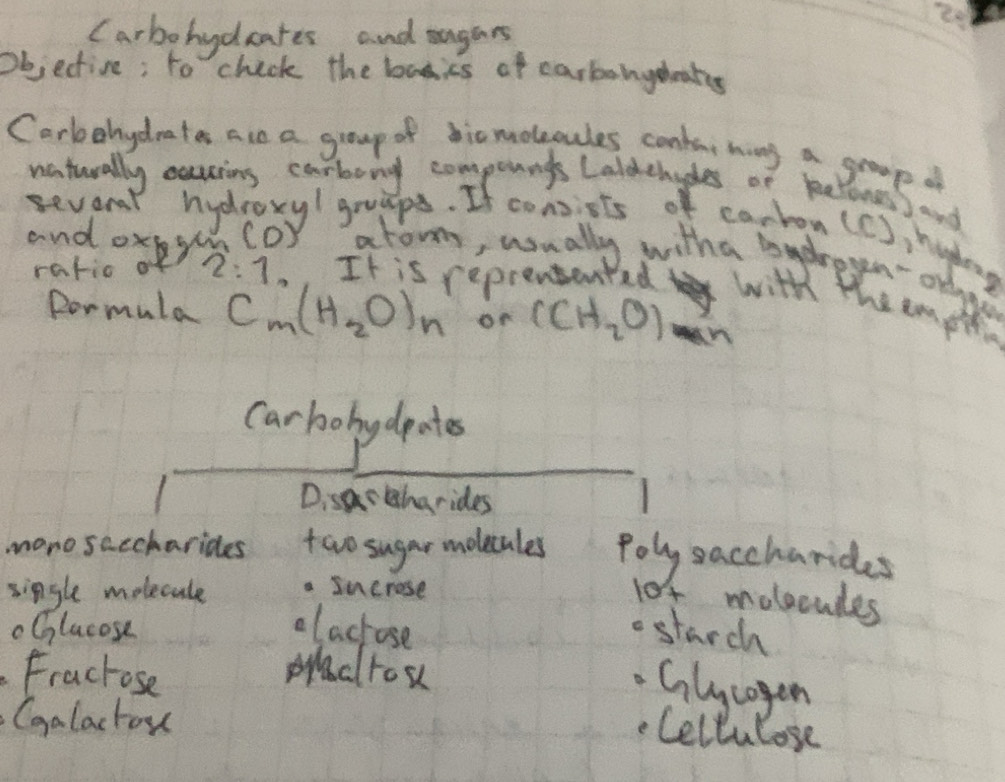 Carbohydrates and sugars
Objective: to check the basics of carbohydrates
Carbohydrates are a group of biomolecules containing a group of
naturally occuring carbonyl compounds (aldehydes or ketones) and
several hydroxyl groups. It consists of carbon (C), hydrogen
and oxygen (O) atoms, usually with a hydrogen-oxygen
ratio of 2:1. It is reprensented with the
formula Cm(H₂O)n or (CH₂O)n
Carbohydrates
monosaccharides
single molecule
• Glucose
• Fractose
• Galactose
Disaccharides
two sugar molecules
• sucrose
• lactose
Maltose
Polysaccharides
10+ molecules
• starch
• Glycogen
• Cellulose